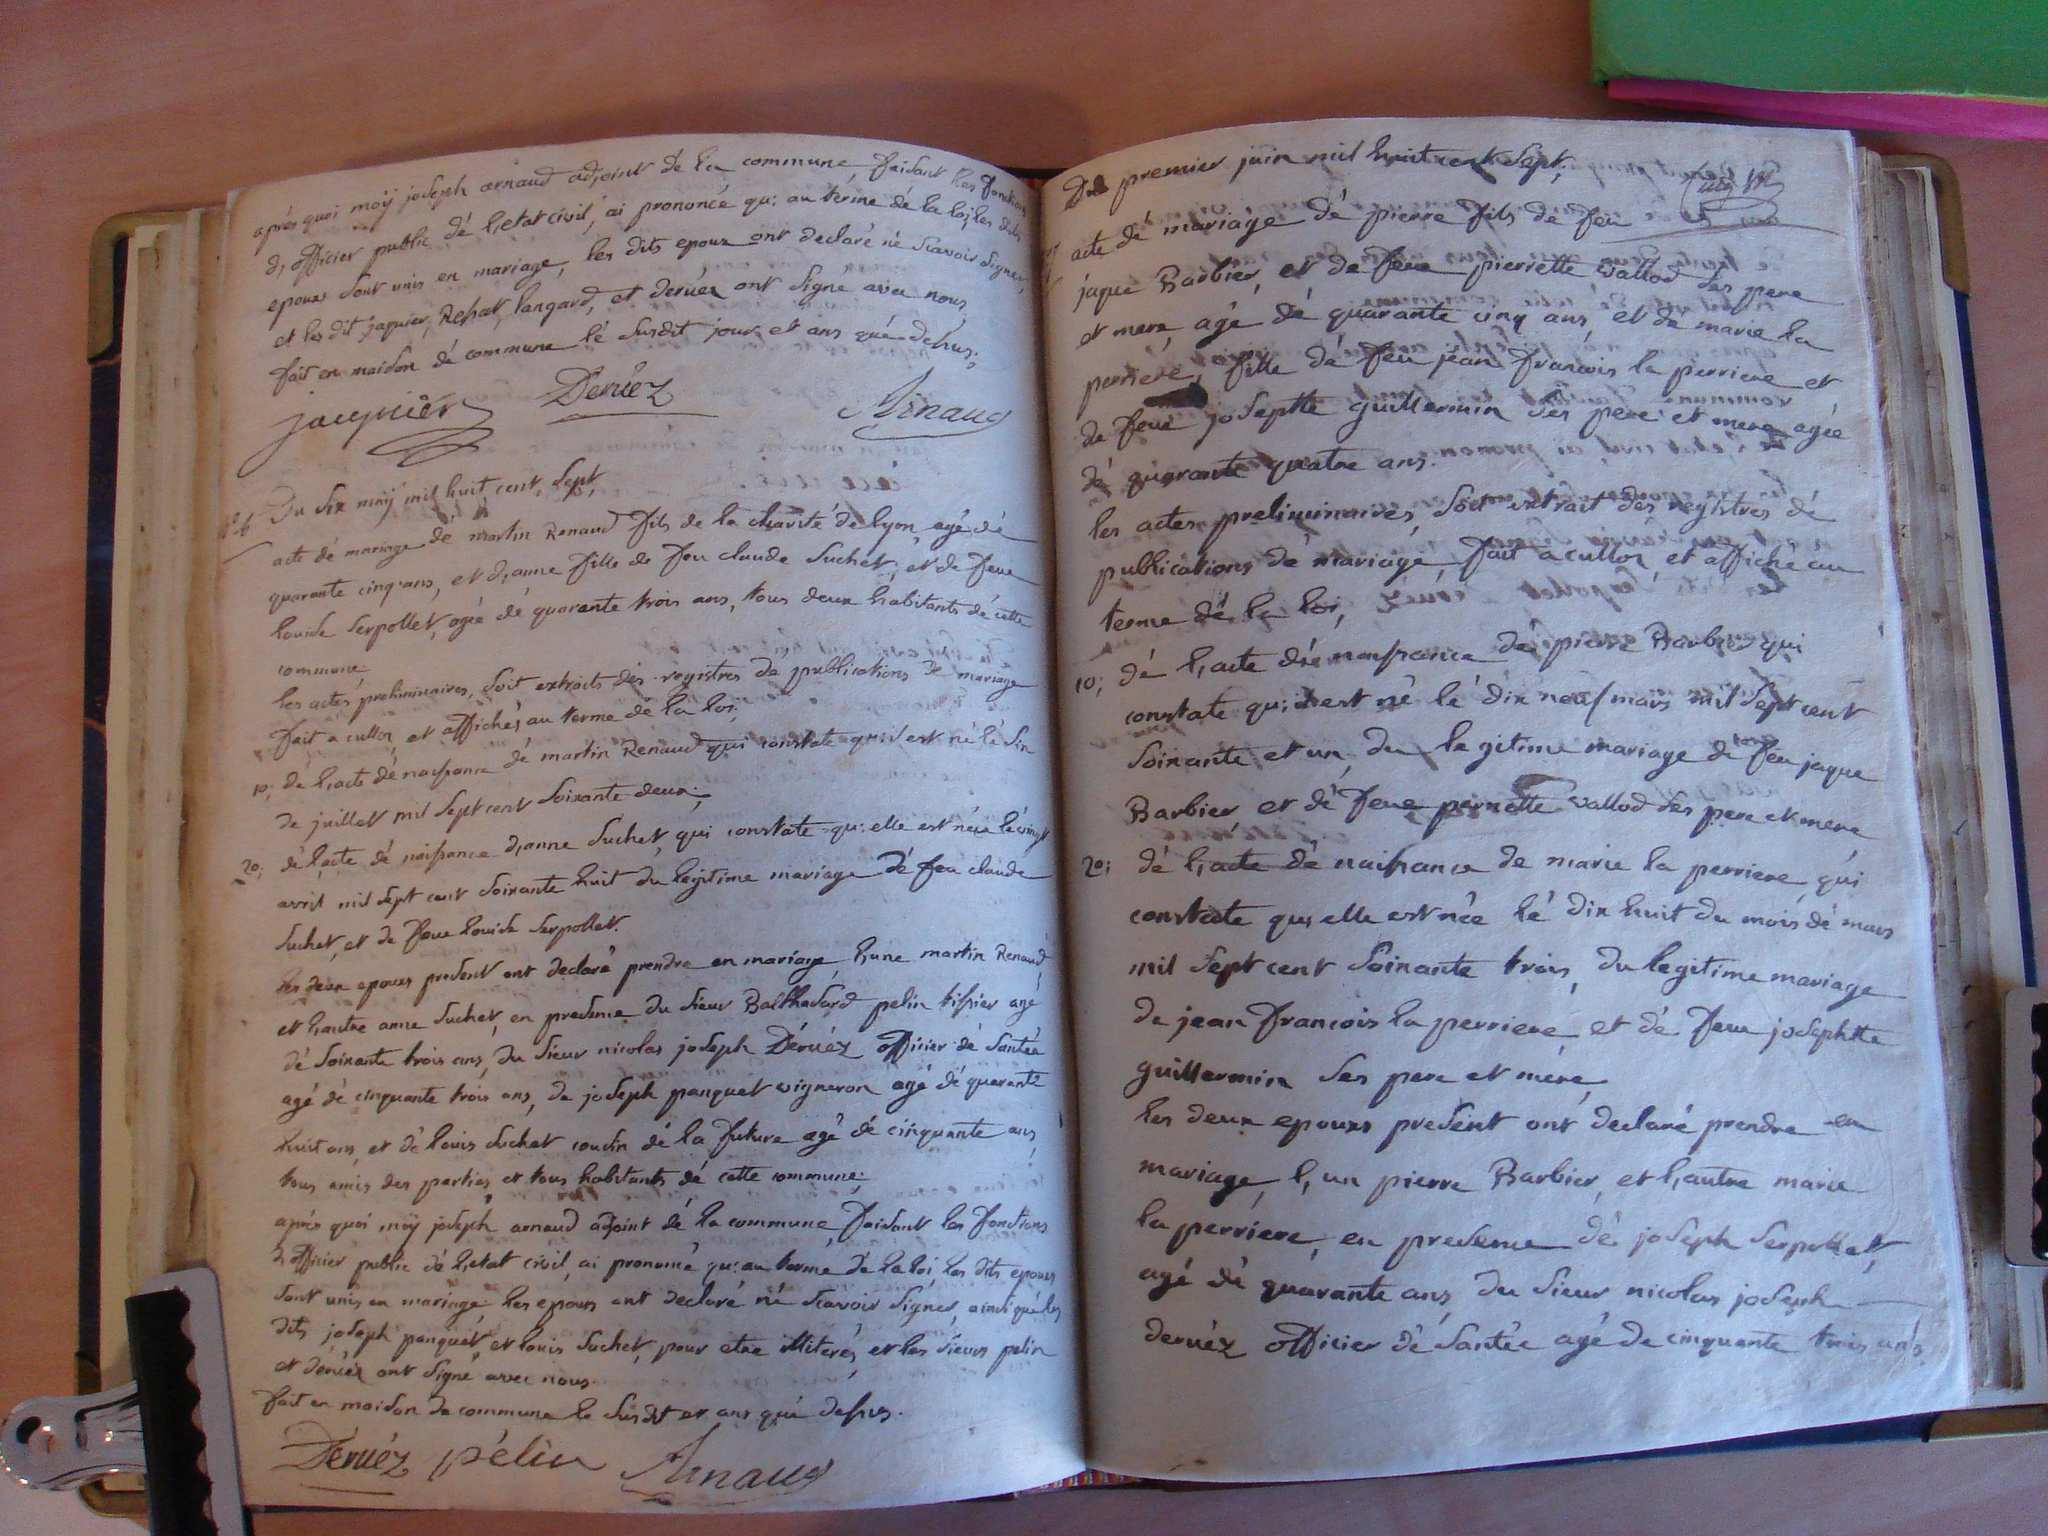 après quoi moÿ joseph arnaud adjoint dé la commune, faisant les fonctions
d, officier public dé l,etat civil, ai prononcé qu; au terme dé la loi, les dits
epoux sont unis en mariage, les dits epoux ont declaré né scavoir signer,
et les dit jaquier, Repat, langard, et deruéz ont signé avec nous,
fait en maison dé commune lé susdit jour et ans qué dessus;
jacquier Deruéz Arnaud
Du six maÿ mil huit cent, sept,
acte dé mariage dé martin Renaud fils de la charité de lyon, agé dé
quarante cinq ans, et d,anne fille de feu claude suchet, et de feue
louise serpollet, agée dé quarante trois ans, tous deux habitants dé cette
commune,
les actes preliminaires, soit extraits des registres de publications de mariage
fait a culloz, et affichés, au terme dé la loi;
1o; dé l,acte dé naissance dé martin Renaud qui constate qu;il est né lé six
de juillet mil sept cent soixante deux;
2o; dé l,acte dé naissance d,anne suchet, qui constate qu;elle est née lé vingt
avril mil sept cent soixante huit du legitime mariage dé feu claude
suchet, et de feue louise serpollet.
les deux epoux present ont declaré prendre en mariage, l,une martin Renaud
et l,autre anne suchet, en presence du sieur Balthasard pelin tissier agé
dé soixante trois ans, du sieur nicolas joseph Déruéz officier dé santée
agé dé cinquante trois ans, de joseph panquet vigneron agé dé quarante
huit ans, et dé louis suchet cousin dé la future agé dé cinquante ans,
tous amis des parties, et tous habitants dé cette commune;
après quoi, möÿ joseph arnaud adjoint dé la commune, faisant les fonctions
d,officier public dé l,etat civil, ai prononcé qu;au termé dé la loi, les dits epoux
sont unis en mariage les epoux ont declaré né scavoir signer, ainsi qué les
dits joseph panquét, et louis suchet, pour etre illiterés, et les sieurs pelin
et déruéz ont signé avec nous
fait en maison de commune le susdit et ans qué dessus.
Déruéz pélin Arnaud
Du premier juin mil huit cent sept;
acte dé mariage dé pierre fils de feu
jaque Barbier, et de feue pierrette vallod ses pere
et mere, agé dé quarante cinq ans, et de marie la
perriere, fille dé feu jean françois la perriere et
de feue josephtte guillermin ses pere et mere agée
dé quarante quatre ans.
les actes preliminaires, soit extrait des registres dé
publications dé mariage, fait a culloz, et affiché au
terme dé la loi,
1o; dé l,acte dé naissance dé pierre Barbier qui
constate qu;il est né lé dix neuf mars mil sept cent
soixante et un, du legitime mariage de feu jaque
Barbier, et dé feue pernette vallod ses pere et mere
2o; dé l,acte dé naissance de marie la perriere, qui
constate qu; elle est née lé dix huit du mois dé mars
mil sept cent soixante trois, du legitime mariage
de jean françois la perriere, et dé feue josephtte
guillermin ses pere et mére,
les deux epoux present ont declaré prendre en
mariage, l, un pierre Barbier, et l,autre marie
la perriere, en presence dé joseph serpollet,
agé dé quarante ans, du sieur nicolas joseph
deruéz officier dé santée agé de cinquante trois ans,